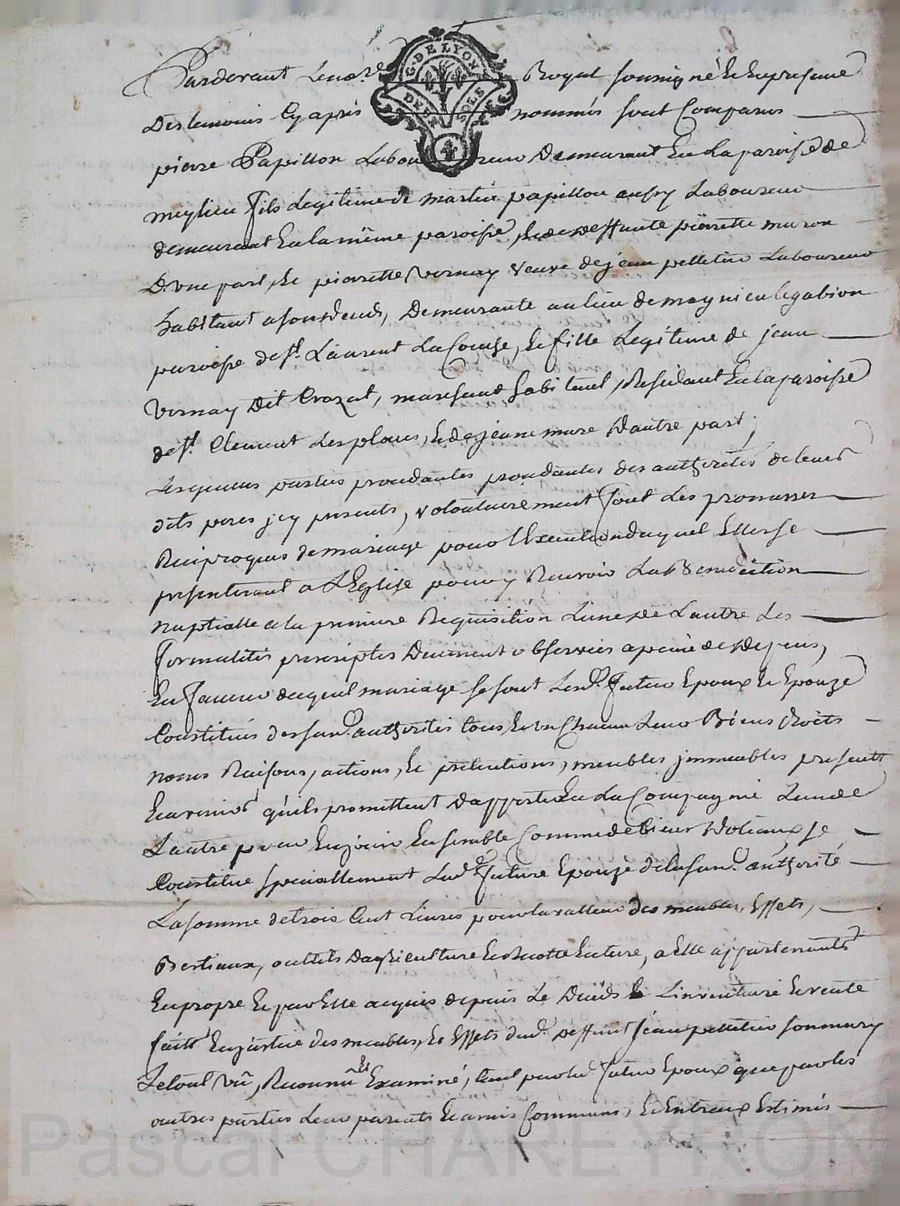 G. DE LYON
DEUX SOLS
Pardevant Lenore Royal soussigné Et En presance
Des temoins Cy aprés nommés sont Comparus
pierre Papillon Laboureur Demeurant En La paroisse de
meylieu fils Legitime de martin papillon aussy Laboureur
demeurant En la même paroisse, Et de deffunte pierrette muron
D'une part, Et pierrette Vernay Veuve de jean pelletier Laboureur
habitant a son deceds, Demeurante au lieu de magnieu le gabion
paroisse de st. Laurent La Conche, Et fille Legitime de jean
Vernay Dit Crozat, marchand habitant, Residant En la paroisse
de st. Clement Les places, Et de jeanne mure D'autre part;
Lesquelles parties procedantes procedantes des authorités de leurs
dits peres jcy presents, volontairement font des promesses
Reciproques de mariage pour l'Execution duquel Elles se
presenteront a L'Eglise pour y Recevoir La Benediction
nuptialle a la premiere Requisition L'une de L'autre Les
formalités prescriptes Duement observées a peine de Depens,
En faveur duquel mariage se sont Lesd. futurs Epoux Et Epouze
Constitués desd. authorités tous Et un Chacun Leurs Biens droits
noms Raisons, actions, Et prétentions, meubles jmmeubles presents
Et avenir qu'ils promettent D'apporter En La Compagnie L'un de
L'autre pour En jouir Ensemble Comme de biens Dotaux, se
Constitue specialement Lad. future Epouze de lad. authorité
La somme de trois Cent Livres pour la valleur des meubles, Effets,
Bestiaux, outils D'agriculture Et, a Elle appartenants
En propre Et par Elle acquis depuis Le Deceds L'inventaire Et vente
faitte En justice des meubles, Et Effets dud. Deffunt jean pelletier son mary
Le tout Vû, Reconnu Et Examiné, tant par led. futur Epoux que par les
autres parties Leurs parents Et amis Communs, Et Entreux Estimés
Pascal CHAREYRON